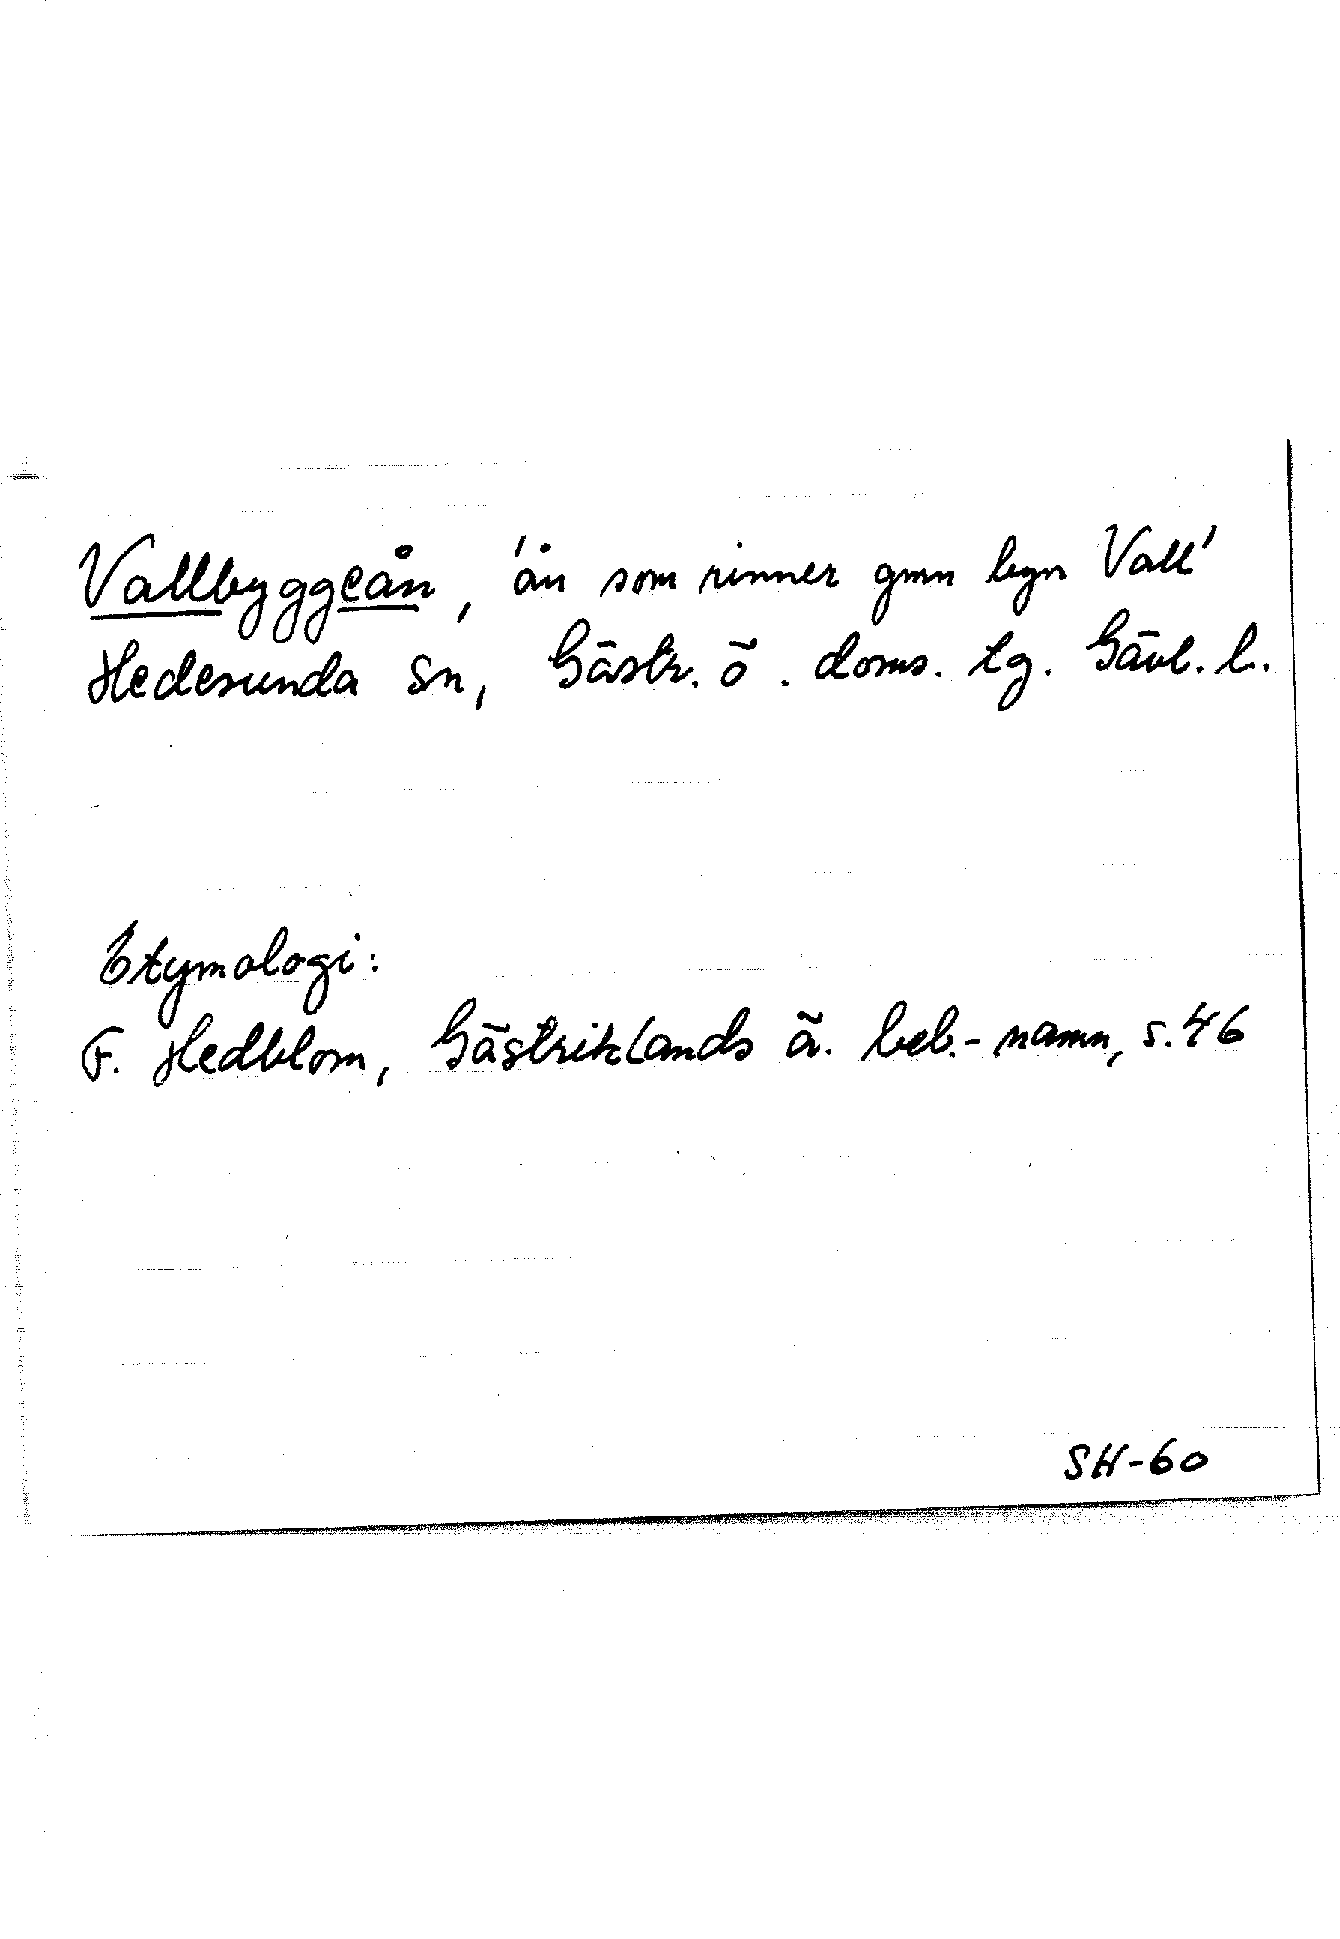 Vallbyggeån, 'ån som rinner gmn byn Vall'
Hedesunda sn, Gästr. ö. doms. tg. Gävl. l.
Etymologi:
F. Hedblom, Gästriklands ä. beb.-namn, s. 46
SH-60